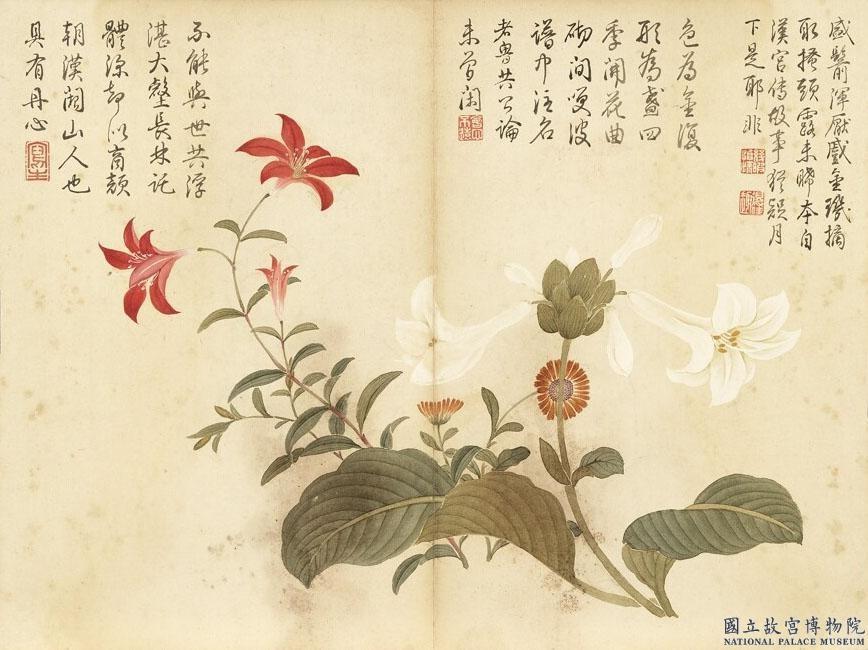 盛鬋渾厭戲金璣摘
取搔頭露未晞本自
漢宮傳故事猶疑月
下是耶非
色為金復
形為盞四
季開花曲
砌間嗅波
譜中注名
者魯共公論
未曾閑
不能與世共浮
湛大壑長林託
體深却似商顏
朝漢闕山人也
具有丹心
國立故宮博物院
NATIONAL PALACE MUSEUM